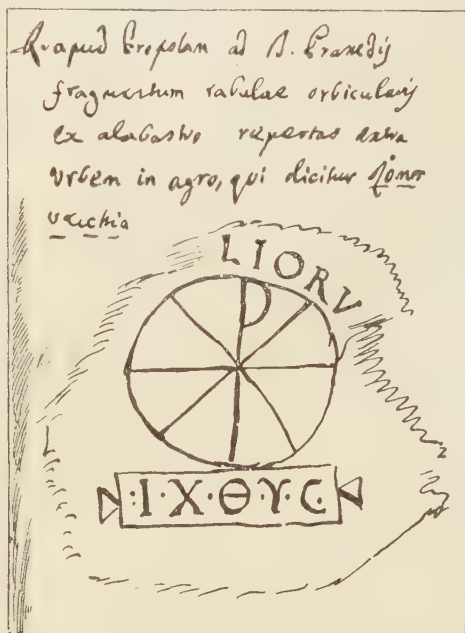 ad S. Praxedis
fragmentum tabulae orbicularis
ex alabastro repertae extra
Urbem in agro, qui dicitur Roma
vecchia
LIORV
P
·I·X·Θ·Υ·C·